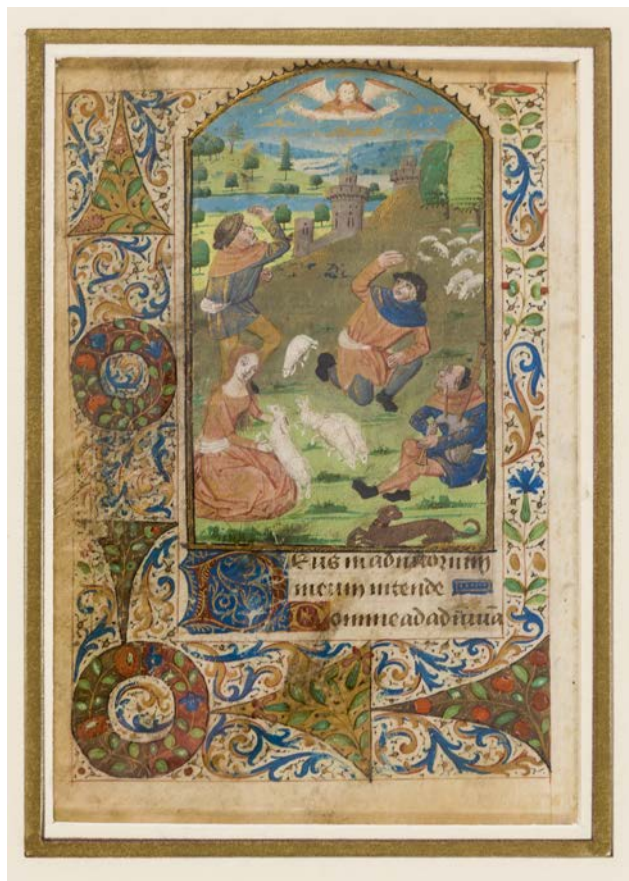 Deus in adiutorium
meum intende
Domine ad adiuua